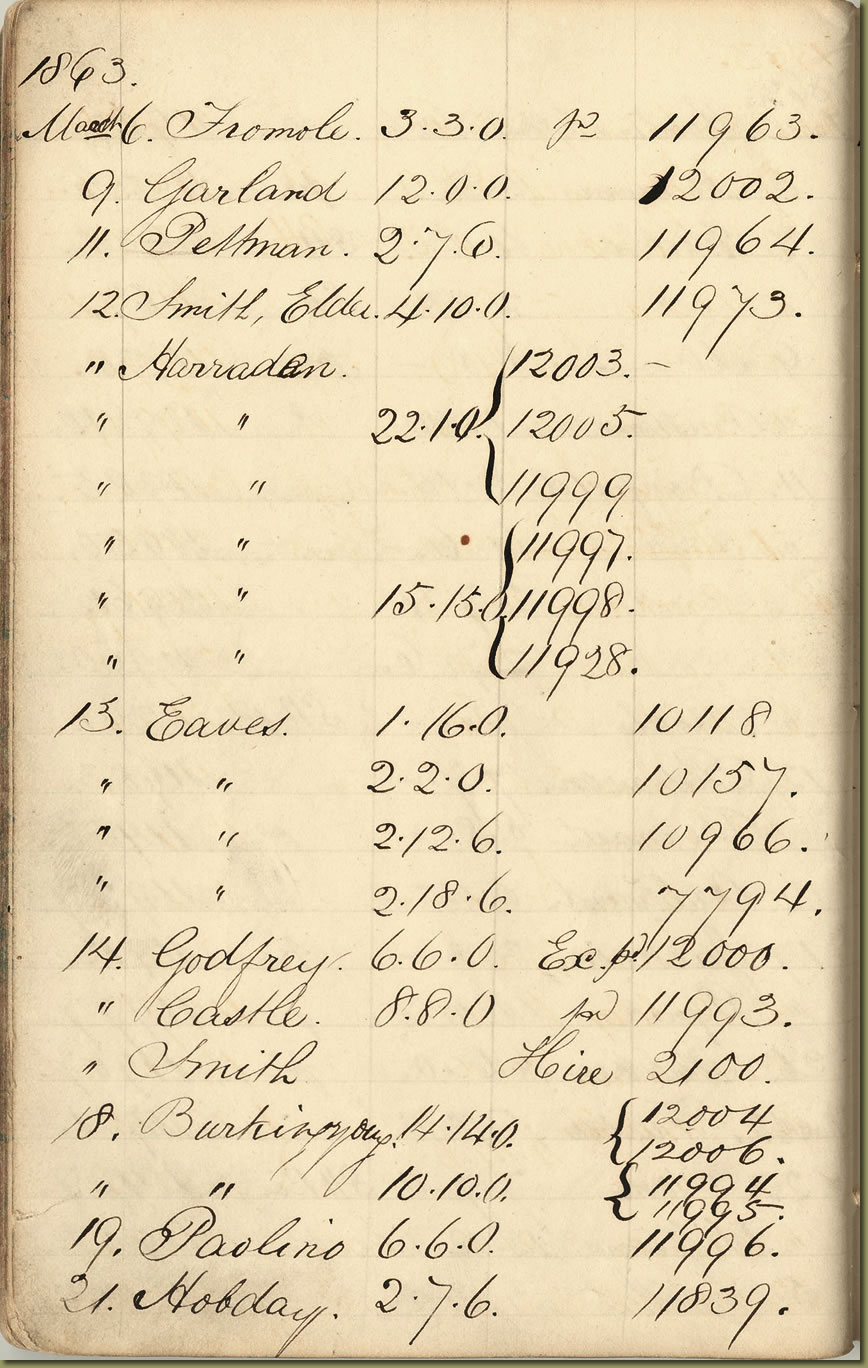 1863.
March 6. Fromole. 3.3.0. pd 11963.
9. Garland 12.0.0. 12002.
11. Pettman. 2.7.6. 11964.
12. Smith, Elder. 4.10.0. 11973.
" Harraden. 12003. –
" " 22.1.0. 12005.
" " 11999
" " 11997.
" " 15.15.0 11998.
" " 11928.
13. Eaves. 1.16.0. 10118
" " 2.2.0. 10157.
" " 2.12.6. 10966.
" " 2.18.6. 7794.
14. Godfrey. 6.6.0. Ex. pd 12000.
" Castle. 8.8.0 pd 11993.
" Smith Hire 2100.
18. Burkinyoung. 14.14.0. 12004
12006.
" " 10.10.0. 11994
11995.
19. Paolino 6.6.0. 11996.
21. Hobday. 2.7.6. 11839.